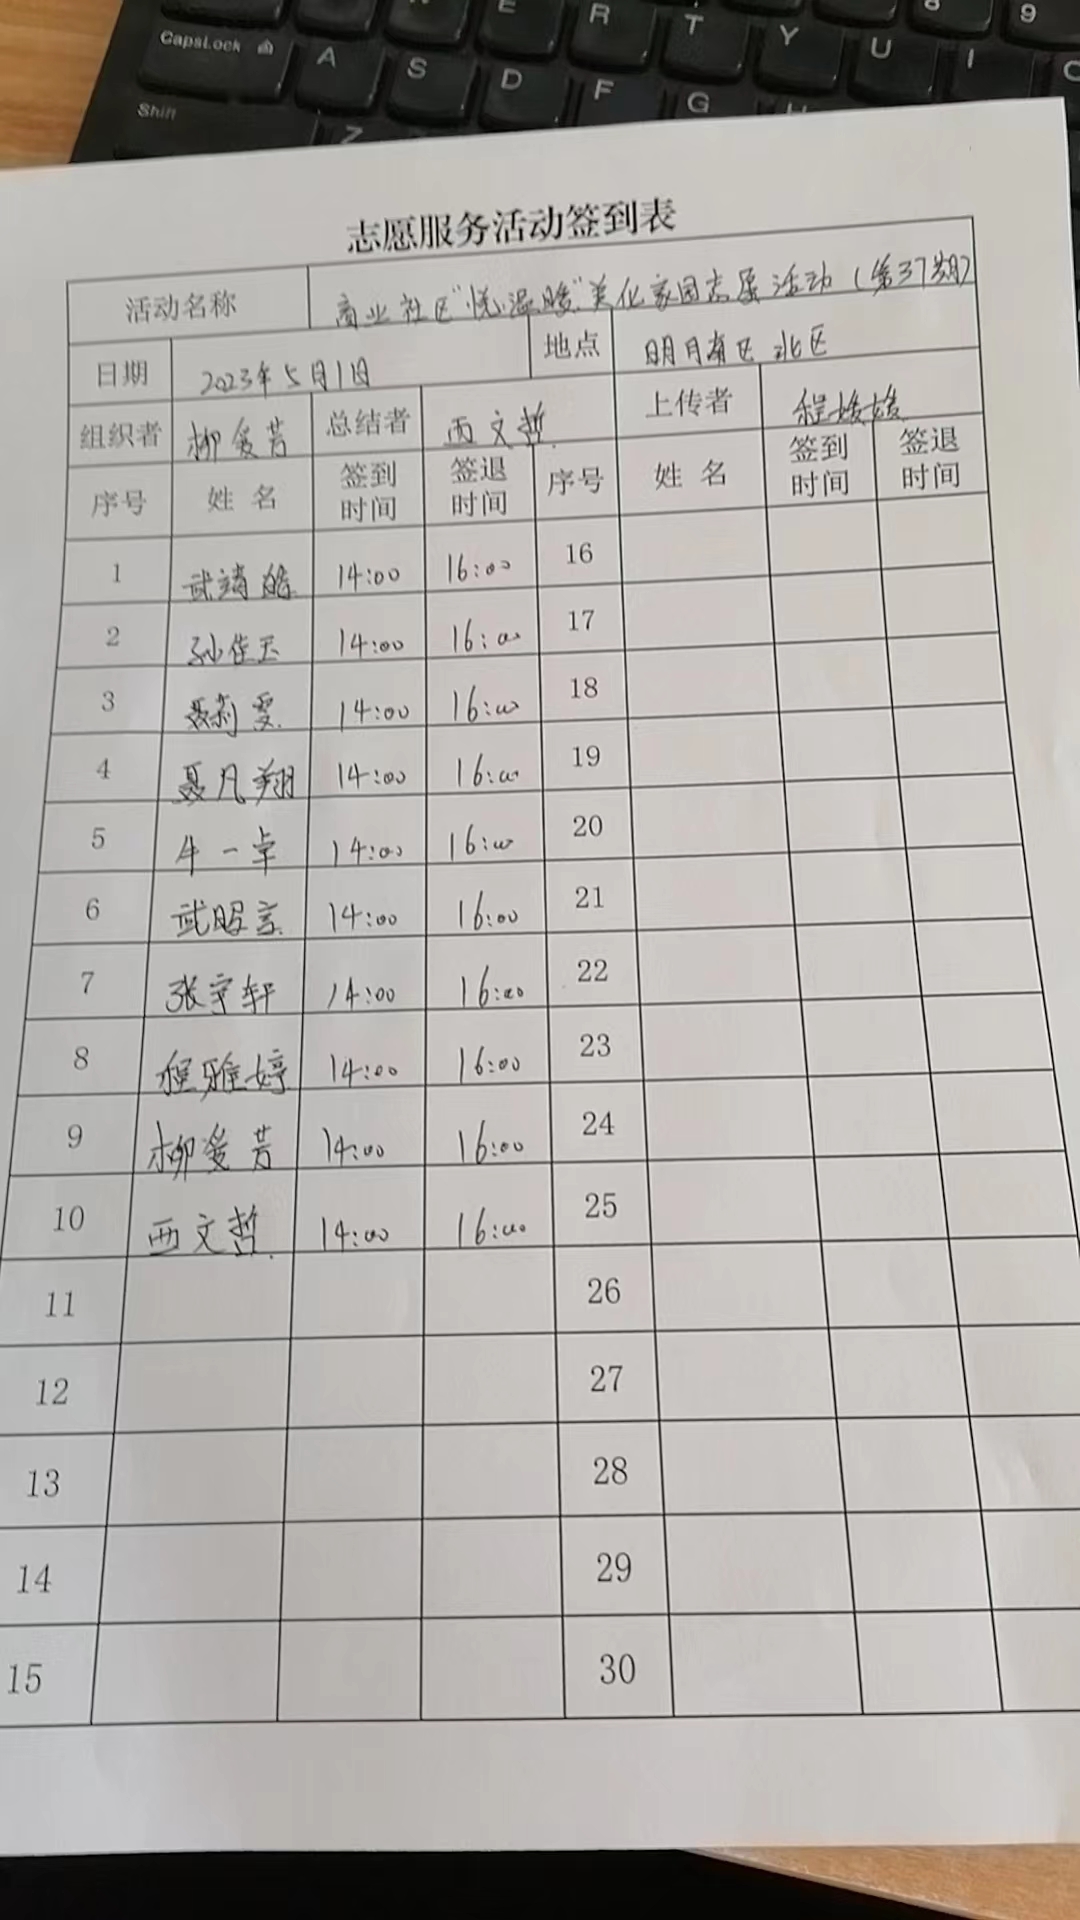 9
E R T Y U I
CapsLock A S D F G
Shift Z
志愿服务活动签到表
活动名称 商业社区"悦温暖"美化家园志愿活动(第37期)
日期 2023年5月1日 地点 明月南区北区
组织者 柳爱芳 总结者 西文哲 上传者 程姣姣
序号 姓名 签到时间 签退时间 序号 姓名 签到时间 签退时间
1 武靖皓 14:00 16:00 16
2 孙佳玉 14:00 16:00 17
3 聂莉雯 14:00 16:00 18
4 聂凡翔 14:00 16:00 19
5 牛一卓 14:00 16:00 20
6 武昭言 14:00 16:00 21
7 张宇轩 14:00 16:00 22
8 程雅婷 14:00 16:00 23
9 柳爱芳 14:00 16:00 24
10 西文哲 14:00 16:00 25
11 26
12 27
13 28
14 29
15 30